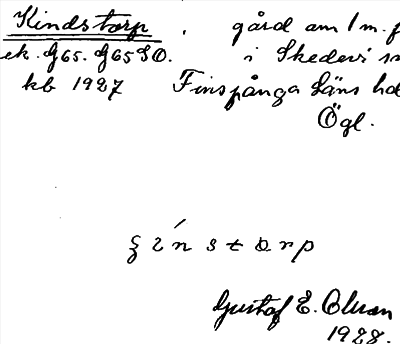 Kindstorp . gård am 1 m. f
ek. G65. G65 SO. i Skedevi sn
kb 1927 Finspånga Läns hd
Ögl.
ʒ ínstorp
Gustaf E.
1928.